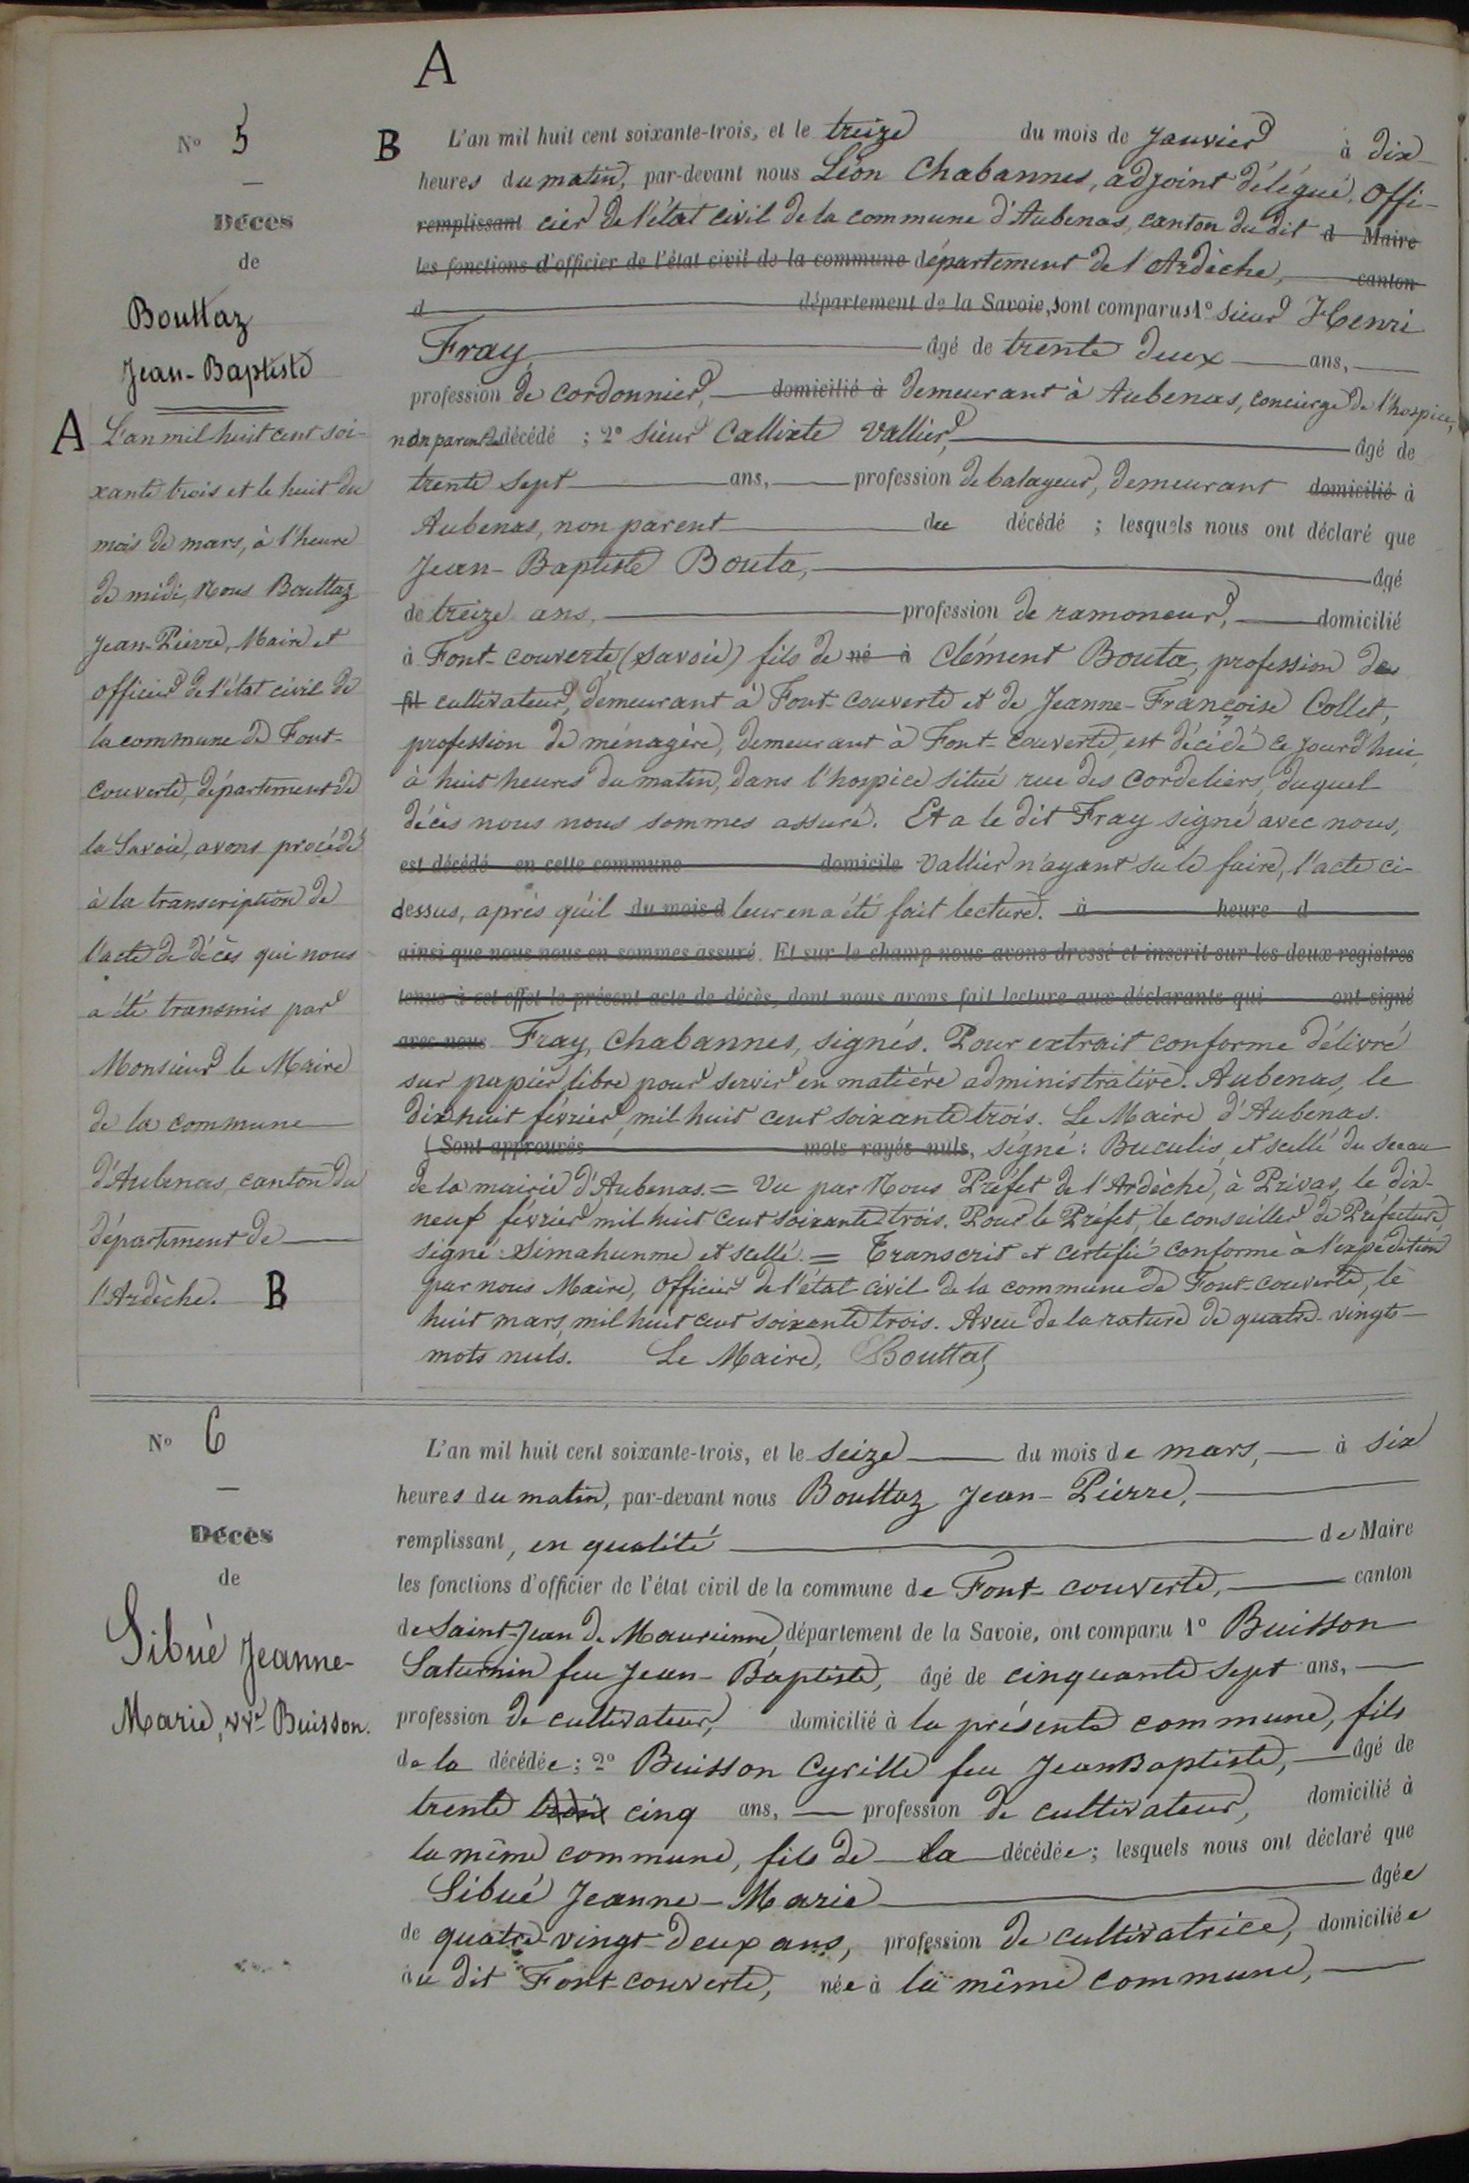 A
N° 5
Décès
de
Bouttaz
Jean-Baptiste
A L'an mil huit cent soi-
xante trois et le huit du
mois de mars, à l'heure
de midi, Nous Bouttaz
Jean-Pierre, Maire et
officier de l'état civil de
la commune de Font-
couverte, département de
la Savoie, avons procédé
à la transcription de
l'acte de décès qui nous
a été transmis par
Monsieur le Maire
de la commune
d'Aubenas, canton du
département de
l'Ardèche. B
B L'an mil huit cent soixante-trois, et le treize du mois de Janvier à dix
heures du matin, par-devant nous Léon Chabannes, adjoint délégué, Offi-
remplissant cier de l'état civil de la commune d'Aubenas, canton du dit d Maire
les fonctions d'officier de l'état civil de la commune département de l'Ardèche, canton
d département de la Savoie, sont comparus 1° sieur Henri
Fray âgé de trente deux ans,
profession de cordonnier, domicilié à demeurant à Aubenas, concierge de l'hospice,
non parent décédé ; 2° sieur Callixte Vallier, âgé de
trente sept ans, profession de balayeur, demeurant domicilié à
Aubenas, non parent du décédé ; lesquels nous ont déclaré que
Jean-Baptiste Bouta, âgé
de treize ans, profession de ramoneur, domicilié
à Font-couverte (Savoie) fils de né à Clément Bouta, profession de
fil cultivateur, demeurant à Font-couverte et de Jeanne-Françoise Collet,
profession de ménagère, demeurant à Font-couverte, est décédé ce jourd'hui,
à huit heures du matin, dans l'hospice situé rue des Cordeliers, duquel
décès nous nous sommes assuré. Et a le dit Fray signé avec nous,
est décédé en cette commune domicile Vallier n'ayant su le faire, l'acte ci-
dessus, après qu'il du mois d leur en a été fait lecture. à heure d
ainsi que nous nous en sommes assuré. Et sur le champ nous avons dressé et inscrit sur les deux registres
tenus à cet effet le présent acte de décès, dont nous avons fait lecture aux déclarants qui ont signé
avec nous Fray, Chabannes, signés. Pour extrait conforme délivré
sur papier libre pour servir en matière administrative. Aubenas, le
dix huit février mil huit cent soixante trois. Le Maire d'Aubenas.
(Sont approuvés mots rayés nuls, signé : Buculis, et scellé du sceau
de la mairie d'Aubenas. = Vu par Nous Préfet de l'Ardèche, à Privas, le dix-
neuf février mil huit cent soixante trois. Pour le Préfet, le conseiller de Préfecture,
signé : et scellé. = Transcrit et certifié conforme à l'expédition
par nous Maire, Officier de l'état civil de la commune de Font-couverte, le
huit mars, mil huit cent soixante trois. Aveu de la rature de quatre-vingts
mots nuls. Le Maire, Bouttaz
N° 6
Décès
de
Sibué Jeanne-
Marie, vve Buisson.
L'an mil huit cent soixante-trois, et le seize du mois de mars, à six
heures du matin, par-devant nous Bouttaz Jean-Pierre,
remplissant, en qualité de Maire
les fonctions d'officier de l'état civil de la commune de Font-couverte, canton
de Saint-Jean de Maurienne, département de la Savoie, ont comparu 1° Buisson
Saturnin feu Jean-Baptiste, âgé de cinquante sept ans,
profession de cultivateur, domicilié à la présente commune, fils
de la décédée ; 2° Buisson Cyrille feu Jean Baptiste, âgé de
trente trois cinq ans, profession de cultivateur, domicilié à
la même commune, fils de la décédée ; lesquels nous ont déclaré que
Sibué Jeanne-Marie âgée
de quatre-vingt-deux ans, profession de cultivatrice, domiciliée
au dit Font-couverte, née à la même commune,